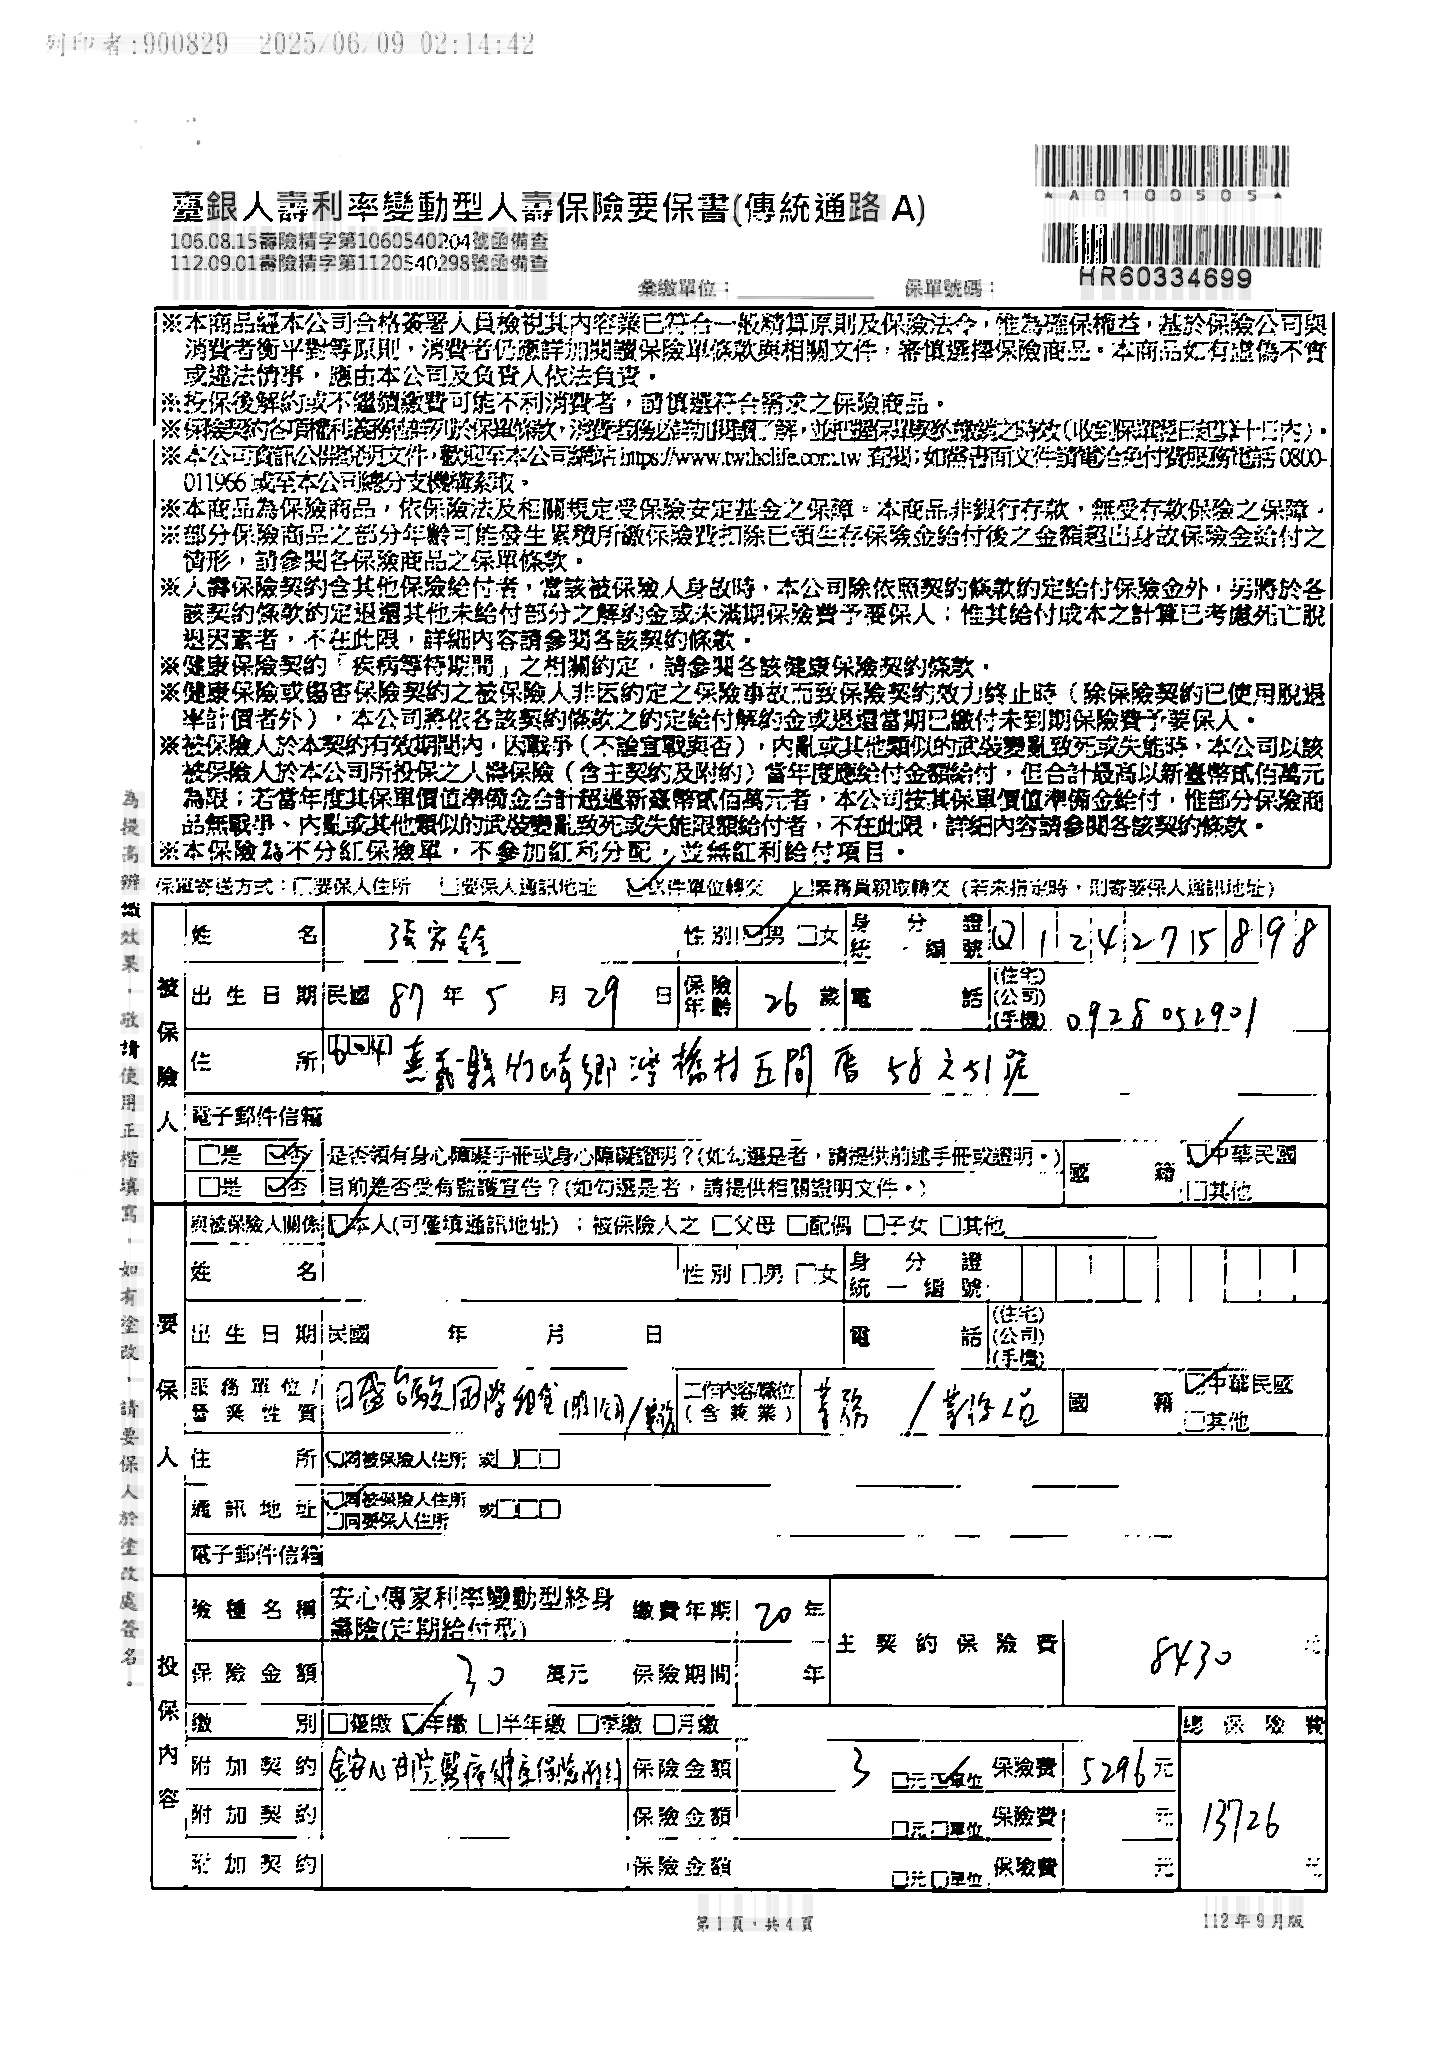 列印者:900829 2025/06/09 02:14:42
*A0100505*
臺銀人壽利率變動型人壽保險要保書(傳統通路 A)
106.08.15壽險精字第1060540204號函備查
112.09.01壽險精字第1120540298號函備查
HR60334699
彙繳單位： 保單號碼：
※本商品經本公司合格簽署人員檢視其內容業已符合一般精算原則及保險法令，惟為確保權益，基於保險公司與
消費者衡平對等原則，消費者仍應詳加閱讀保險單條款與相關文件，審慎選擇保險商品。本商品如有虛偽不實
或違法情事，應由本公司及負責人依法負責。
※投保後解約或不繼續繳費可能不利消費者，請慎選符合需求之保險商品。
※保險契約各項權利義務皆詳列於保單條款，消費者務必詳加閱讀了解，並把握保單契約撤銷之時效(收到保單翌日起算十日內)。
※本公司資訊公開說明文件，歡迎至本公司網站https://www.twfhclife.com.tw查閱；如需書面文件請電洽免付費服務電話0800-
011966或至本公司總分支機構索取。
※本商品為保險商品，依保險法及相關規定受保險安定基金之保障。本商品非銀行存款，無受存款保險之保障。
※部分保險商品之部分年齡可能發生累積所繳保險費扣除已領生存保險金給付後之金額超出身故保險金給付之
情形，請參閱各保險商品之保單條款。
※人壽保險契約含其他保險給付者，當該被保險人身故時，本公司除依照契約條款約定給付保險金外，另將於各
該契約條款約定退還其他未給付部分之解約金或未滿期保險費予要保人；惟其給付成本之計算已考慮死亡脫
退因素者，不在此限，詳細內容請參閱各該契約條款。
※健康保險契約「疾病等待期間」之相關約定，請參閱各該健康保險契約條款。
※健康保險或傷害保險契約之被保險人非因約定之保險事故而致保險契約效力終止時（除保險契約已使用脫退
率計價者外），本公司將依各該契約條款之約定給付解約金或退還當期已繳付未到期保險費予要保人。
※被保險人於本契約有效期間內，因戰爭（不論宣戰與否），內亂或其他類似的武裝變亂致死或失能時，本公司以該
被保險人於本公司所投保之人壽保險（含主契約及附約）當年度應給付金額給付，但合計最高以新臺幣貳佰萬元
為限；若當年度其保單價值準備金合計超過新臺幣貳佰萬元者，本公司按其保單價值準備金給付，惟部分保險商
品無戰爭、內亂或其他類似的武裝變亂致死或失能限額給付者，不在此限，詳細內容請參閱各該契約條款。
※本保險為不分紅保險單，不參加紅利分配，並無紅利給付項目。
為提高辦識效果，敬請使用正楷填寫，如有塗改，請要保人於塗改處簽名。
保單寄送方式：□要保人住所 □要保人通訊地址 ☑收件單位轉交 □業務員親取轉交 (若未指定時，則寄要保人通訊地址)
被保險人
姓名 張家銓 性別 ☑男 □女 身分證統一編號 Q1242715898
出生日期 民國 87 年 5 月 29 日 保險年齡 26 歲 電話 (住宅) (公司) (手機) 0928052901
住所 604 嘉義縣竹崎鄉灣橋村五間厝58之51號
電子郵件信箱
□是 ☑否 是否領有身心障礙手冊或身心障礙證明？(如勾選是者，請提供前述手冊或證明。)
□是 ☑否 目前是否受有監護宣告？(如勾選是者，請提供相關證明文件。)
國籍 ☑中華民國 □其他
要保人
與被保險人關係 ☑本人(可僅填通訊地址)；被保險人之 □父母 □配偶 □子女 □其他
姓名 性別 □男 □女 身分證統一編號
出生日期 民國 年 月 日 電話 (住宅) (公司) (手機)
服務單位/營業性質 工作內容/職位(含兼業) 業務 / 業務人員 國籍 ☑中華民國 □其他
住所 ☑同被保險人住所 或□□□
通訊地址 ☑同被保險人住所 □同要保人住所 或□□□
電子郵件信箱
投保內容
險種名稱 安心傳家利率變動型終身壽險(定期給付型) 繳費年期 20 年 主契約保險費 8430 元
保險金額 30 萬元 保險期間 年
繳別 □躉繳 ☑年繳 □半年繳 □季繳 □月繳 總保險費
附加契約 金安心住院醫療健康保險附約 保險金額 3 □元 ☑單位 保險費 5296 元
附加契約 保險金額 □元 □單位 保險費 元 13726
附加契約 保險金額 □元 □單位 保險費 元 元
第1頁，共4頁
112年9月版